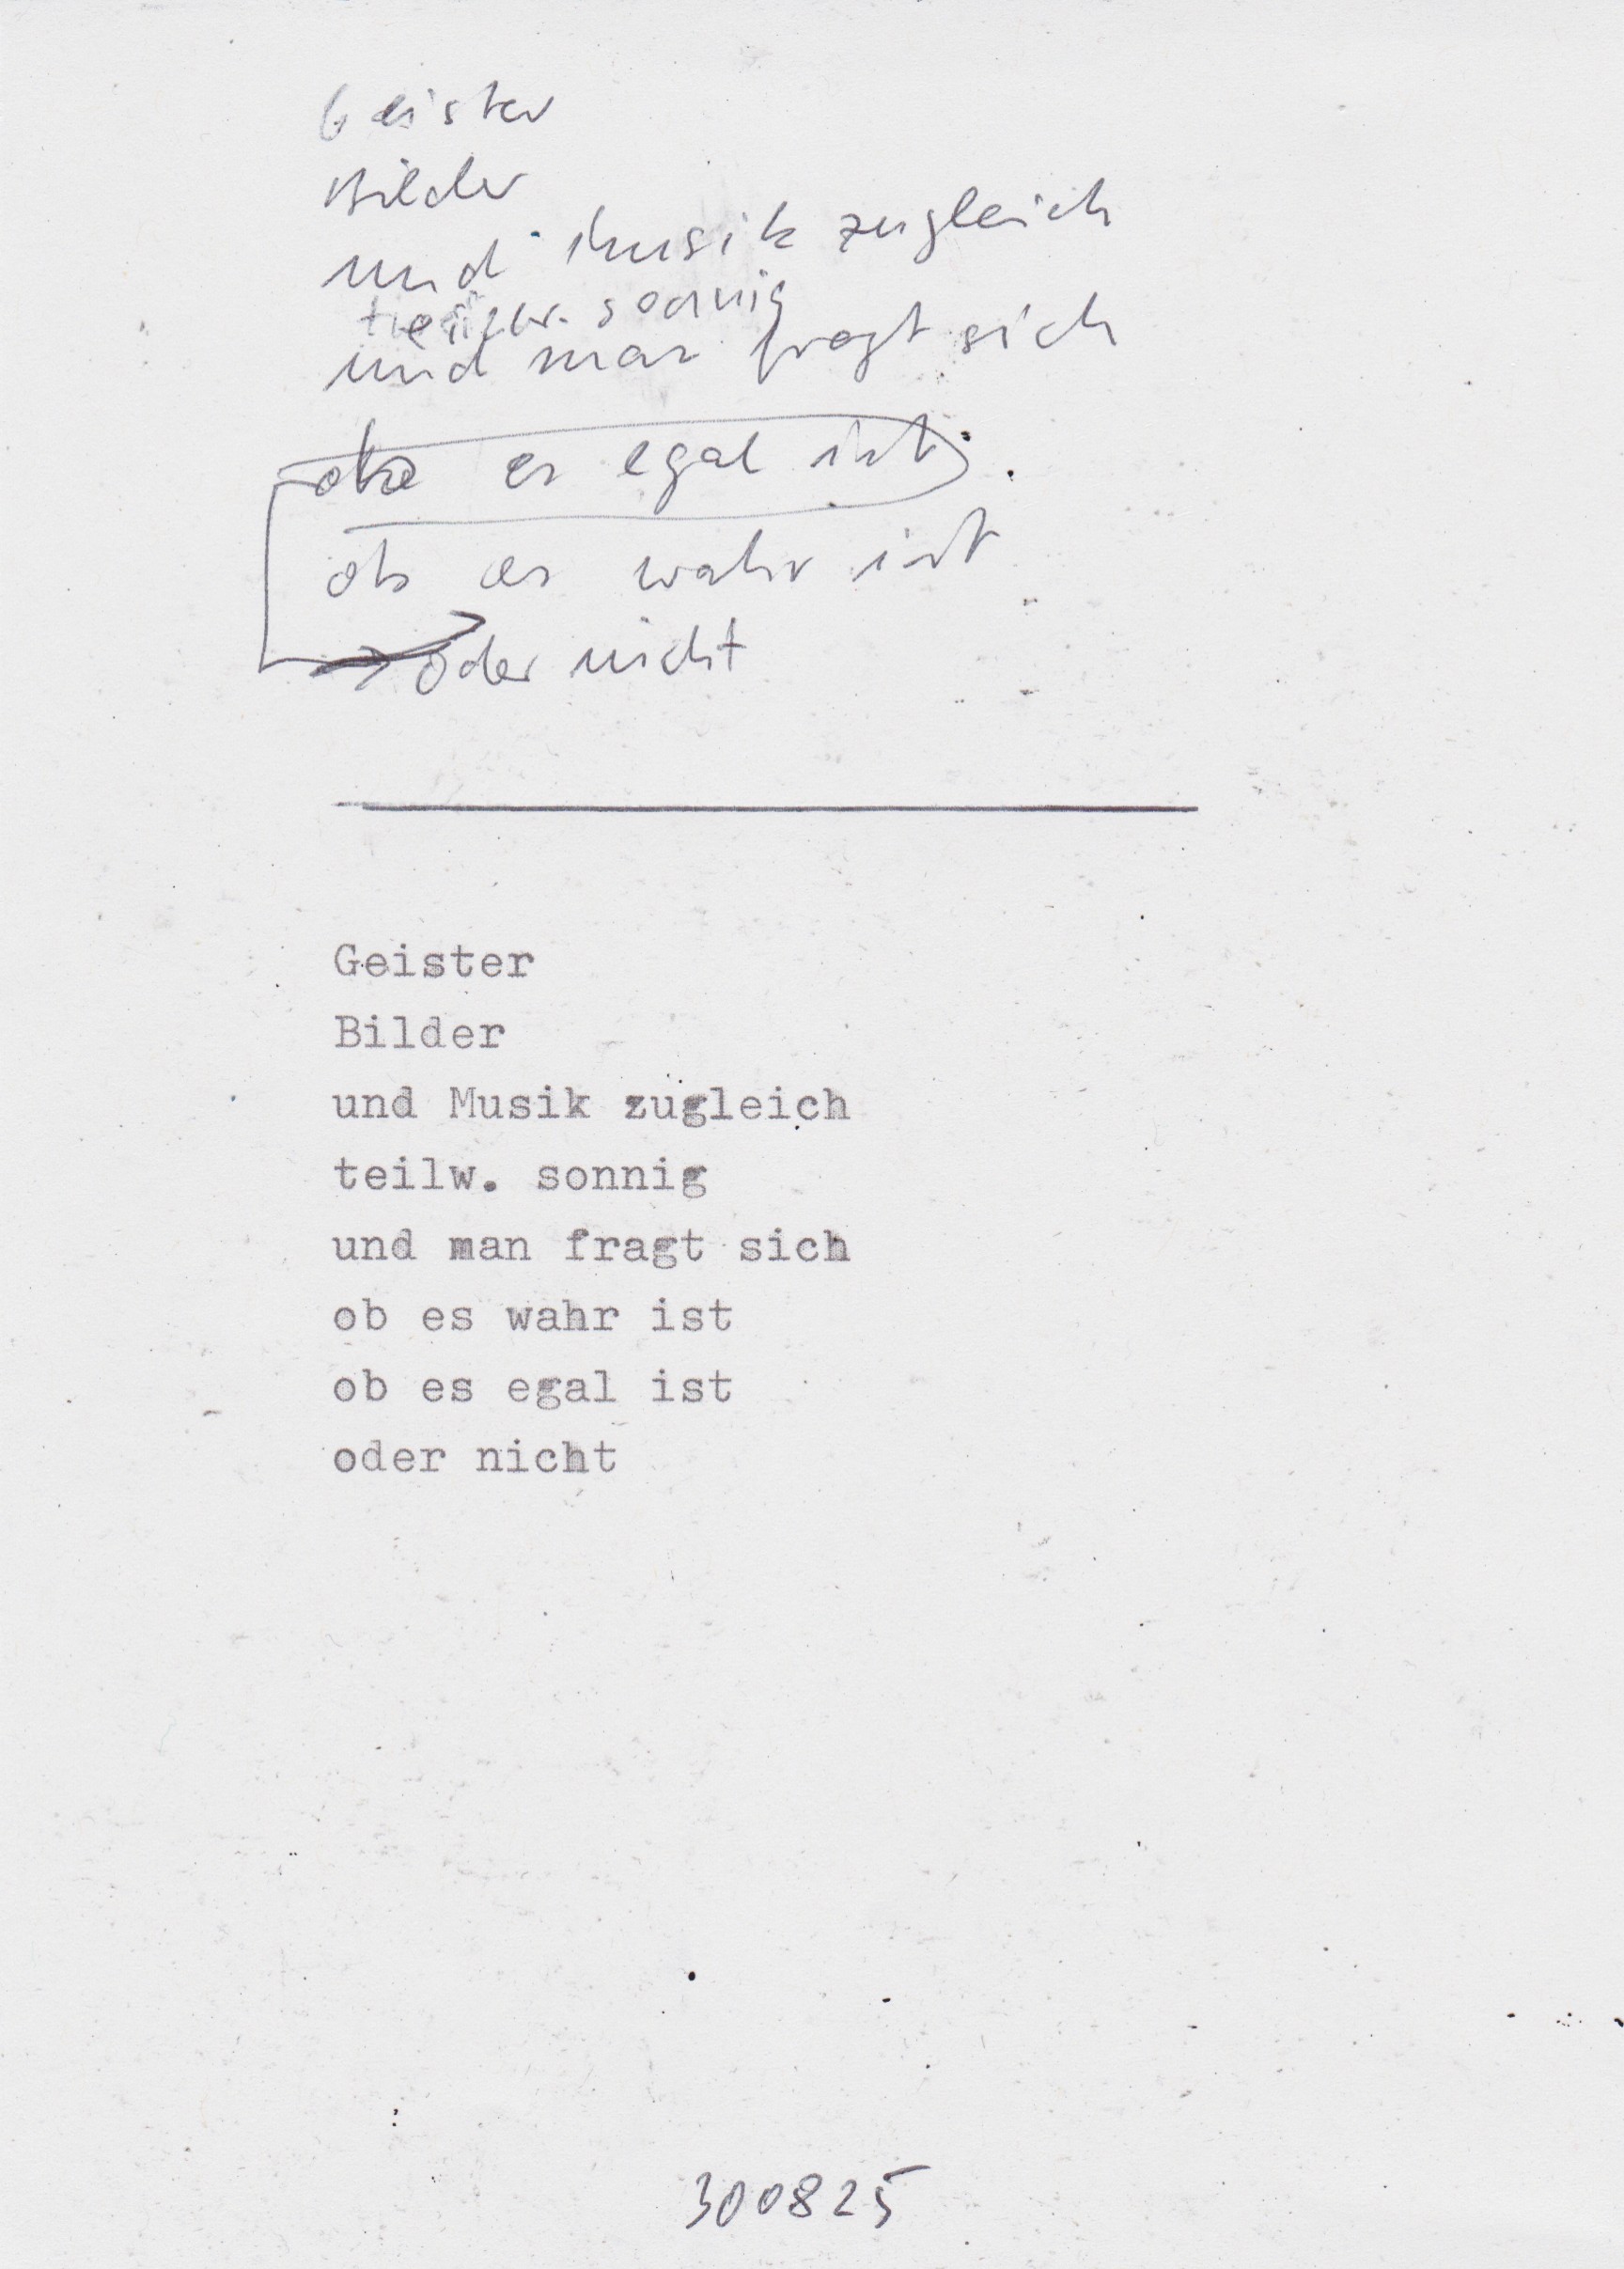 Geister
Bilder
und Musik zugleich
teilw. sonnig
und man fragt sich
ob es egal ist
ob es wahr ist
oder nicht
Geister
Bilder
und Musik zugleich
teilw. sonnig
und man fragt sich
ob es wahr ist
ob es egal ist
oder nicht
300825